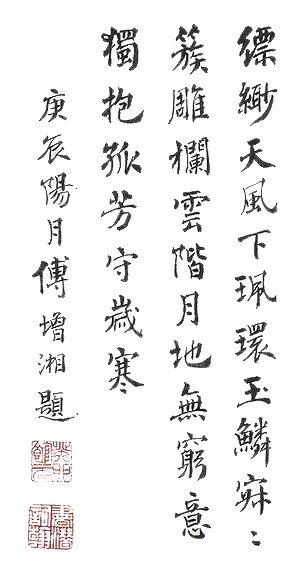 縹緲天風下珮環玉鱗寂〻
簇雕欄雲階月地無窮意
獨抱孤芳守歲寒
庚辰陽月傅增湘題